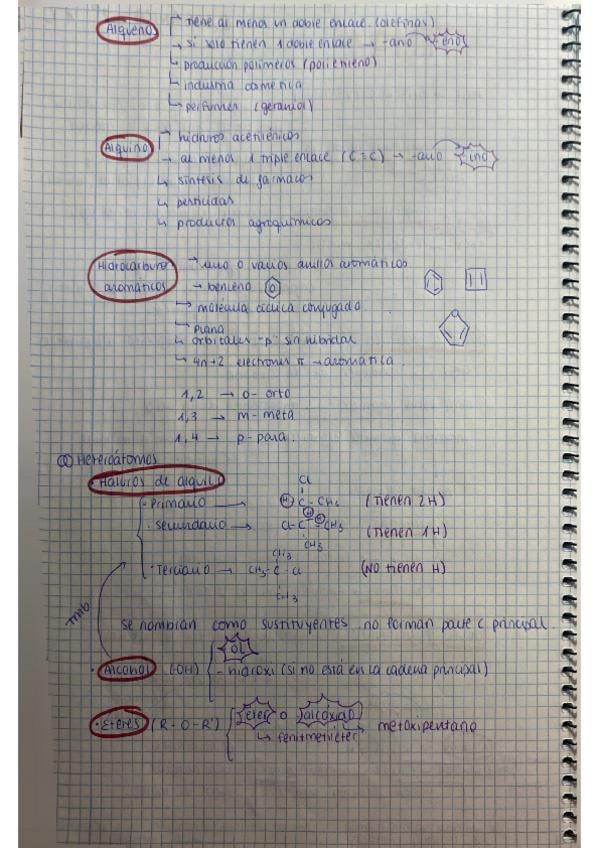 Alqueno
tiene al menos un doble enlace (olefinas)
si solo tienen 1 doble enlace → -ano eno
producción polímeros (polietileno)
industria cosmética
perfumes (geraniol)
Alquino
hidruros acetilénicos
al menos 1 triple enlace (C≡C) → -ano ino
síntesis de fármacos
pesticidas
productos agroquímicos
Hidrocarburos aromáticos
uno o varios anillos aromáticos
benceno
molécula cíclica conjugado
plana
orbitales "p" sin hibridar
4n+2 electrones π → aromática
1,2 → o- orto
1,3 → m- meta
1,4 → p- para.
Heteroátomos
Haluros de alquilo
Cl
· Primario → H C - CH3 (tienen 2H)
H
· Secundario → Cl - C - CH3 (tienen 1H)
CH3
CH3
· Terciario → CH3 - C - Cl (NO tienen H)
CH3
Tmb
se nombran como sustituyentes no forman parte c principal.
· Alcohol (-OH) OL
- hidroxi (si no está en la cadena principal)
· Éteres (R-O-R') éter o alcoxiano metoxipentano
fenilmetiléter